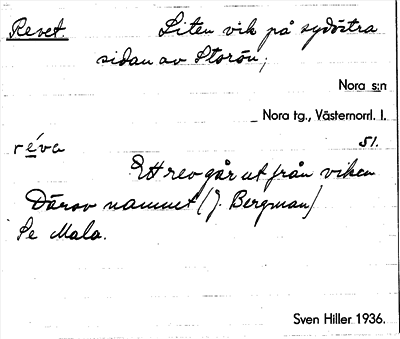 Revet. Liten vik på sydöstra
sidan av Storön;
Nora s:n
Nora tg., Västernorrl. l.
réva 51.
Ett rev går ut från viken
Därav namnet (J. Bergman)
Se Mala.
Sven Hiller 1936.